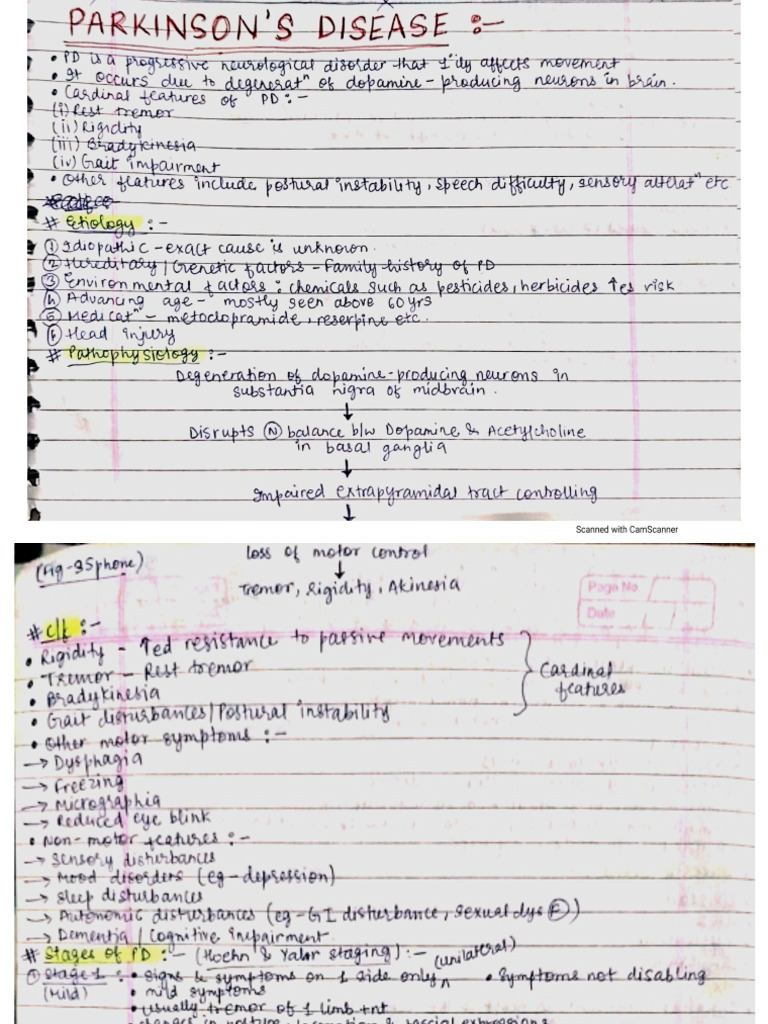 PARKINSON'S DISEASE :-
• PD is a progressive neurological disorder that 1°ily affects movement
• It occurs due to degeneratⁿ of dopamine-producing neurons in brain.
• Cardinal features of PD :-
(i) Rest tremor
(ii) Rigidity
(iii) Bradykinesia
(iv) Gait impairment
• Other features include postural instability, speech difficulty, sensory alteratⁿ etc
# Etiology :-
① Idiopathic - exact cause is unknown.
② Hereditary / Genetic factors - Family history of PD
③ Environmental factors : chemicals such as pesticides, herbicides ↑es risk
④ Advancing age - mostly seen above 60 yrs
⑤ Medicatⁿ - metoclopramide, reserpine etc.
⑥ Head injury
# Pathophysiology :-
Degeneration of dopamine-producing neurons in
substantia nigra of midbrain.
↓
Disrupts Ⓝ balance b/w Dopamine & Acetylcholine
in basal ganglia
↓
Impaired extrapyramidal tract controlling
↓
Scanned with CamScanner
loss of motor control
↓
Tremor, Rigidity, Akinesia
Page No
Date
# C/f :-
• Rigidity - ↑ed resistance to passive movements
• Tremor - Rest tremor
• Bradykinesia
• Gait disturbances / Postural instability
Cardinal
features
• Other motor symptoms :-
→ Dysphagia
→ Freezing
→ Micrographia
→ Reduced eye blink
• Non-motor features :-
→ Sensory disturbances
→ Mood disorders (eg - depression)
→ Sleep disturbances
→ Autonomic disturbances (eg - GI disturbance, Sexual dysⒻ)
→ Dementia / Cognitive impairment
# Stages of PD :- (Hoehn & Yahr staging) :-
① Stage 1 : • Signs & symptoms on 1 side only ^ (unilateral) • Symptoms not disabling
(Mild) • mild symptoms
• usually tremor of 1 limb +nt